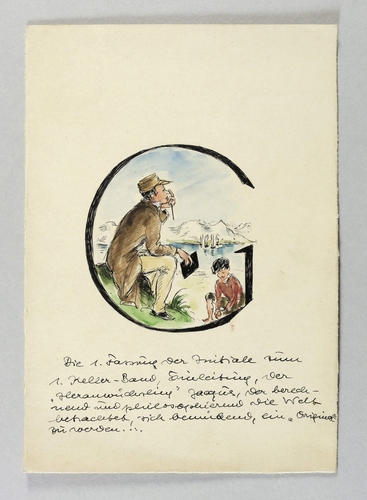 G
Die 1. Fassung der Initiale zum
1. Keller-Band, Einleitung, der
„Heranwüchsling" Jacques, der berech-
nend und philosophierend die Welt
betrachtet, sich bemühend, ein „Original"
zu werden...